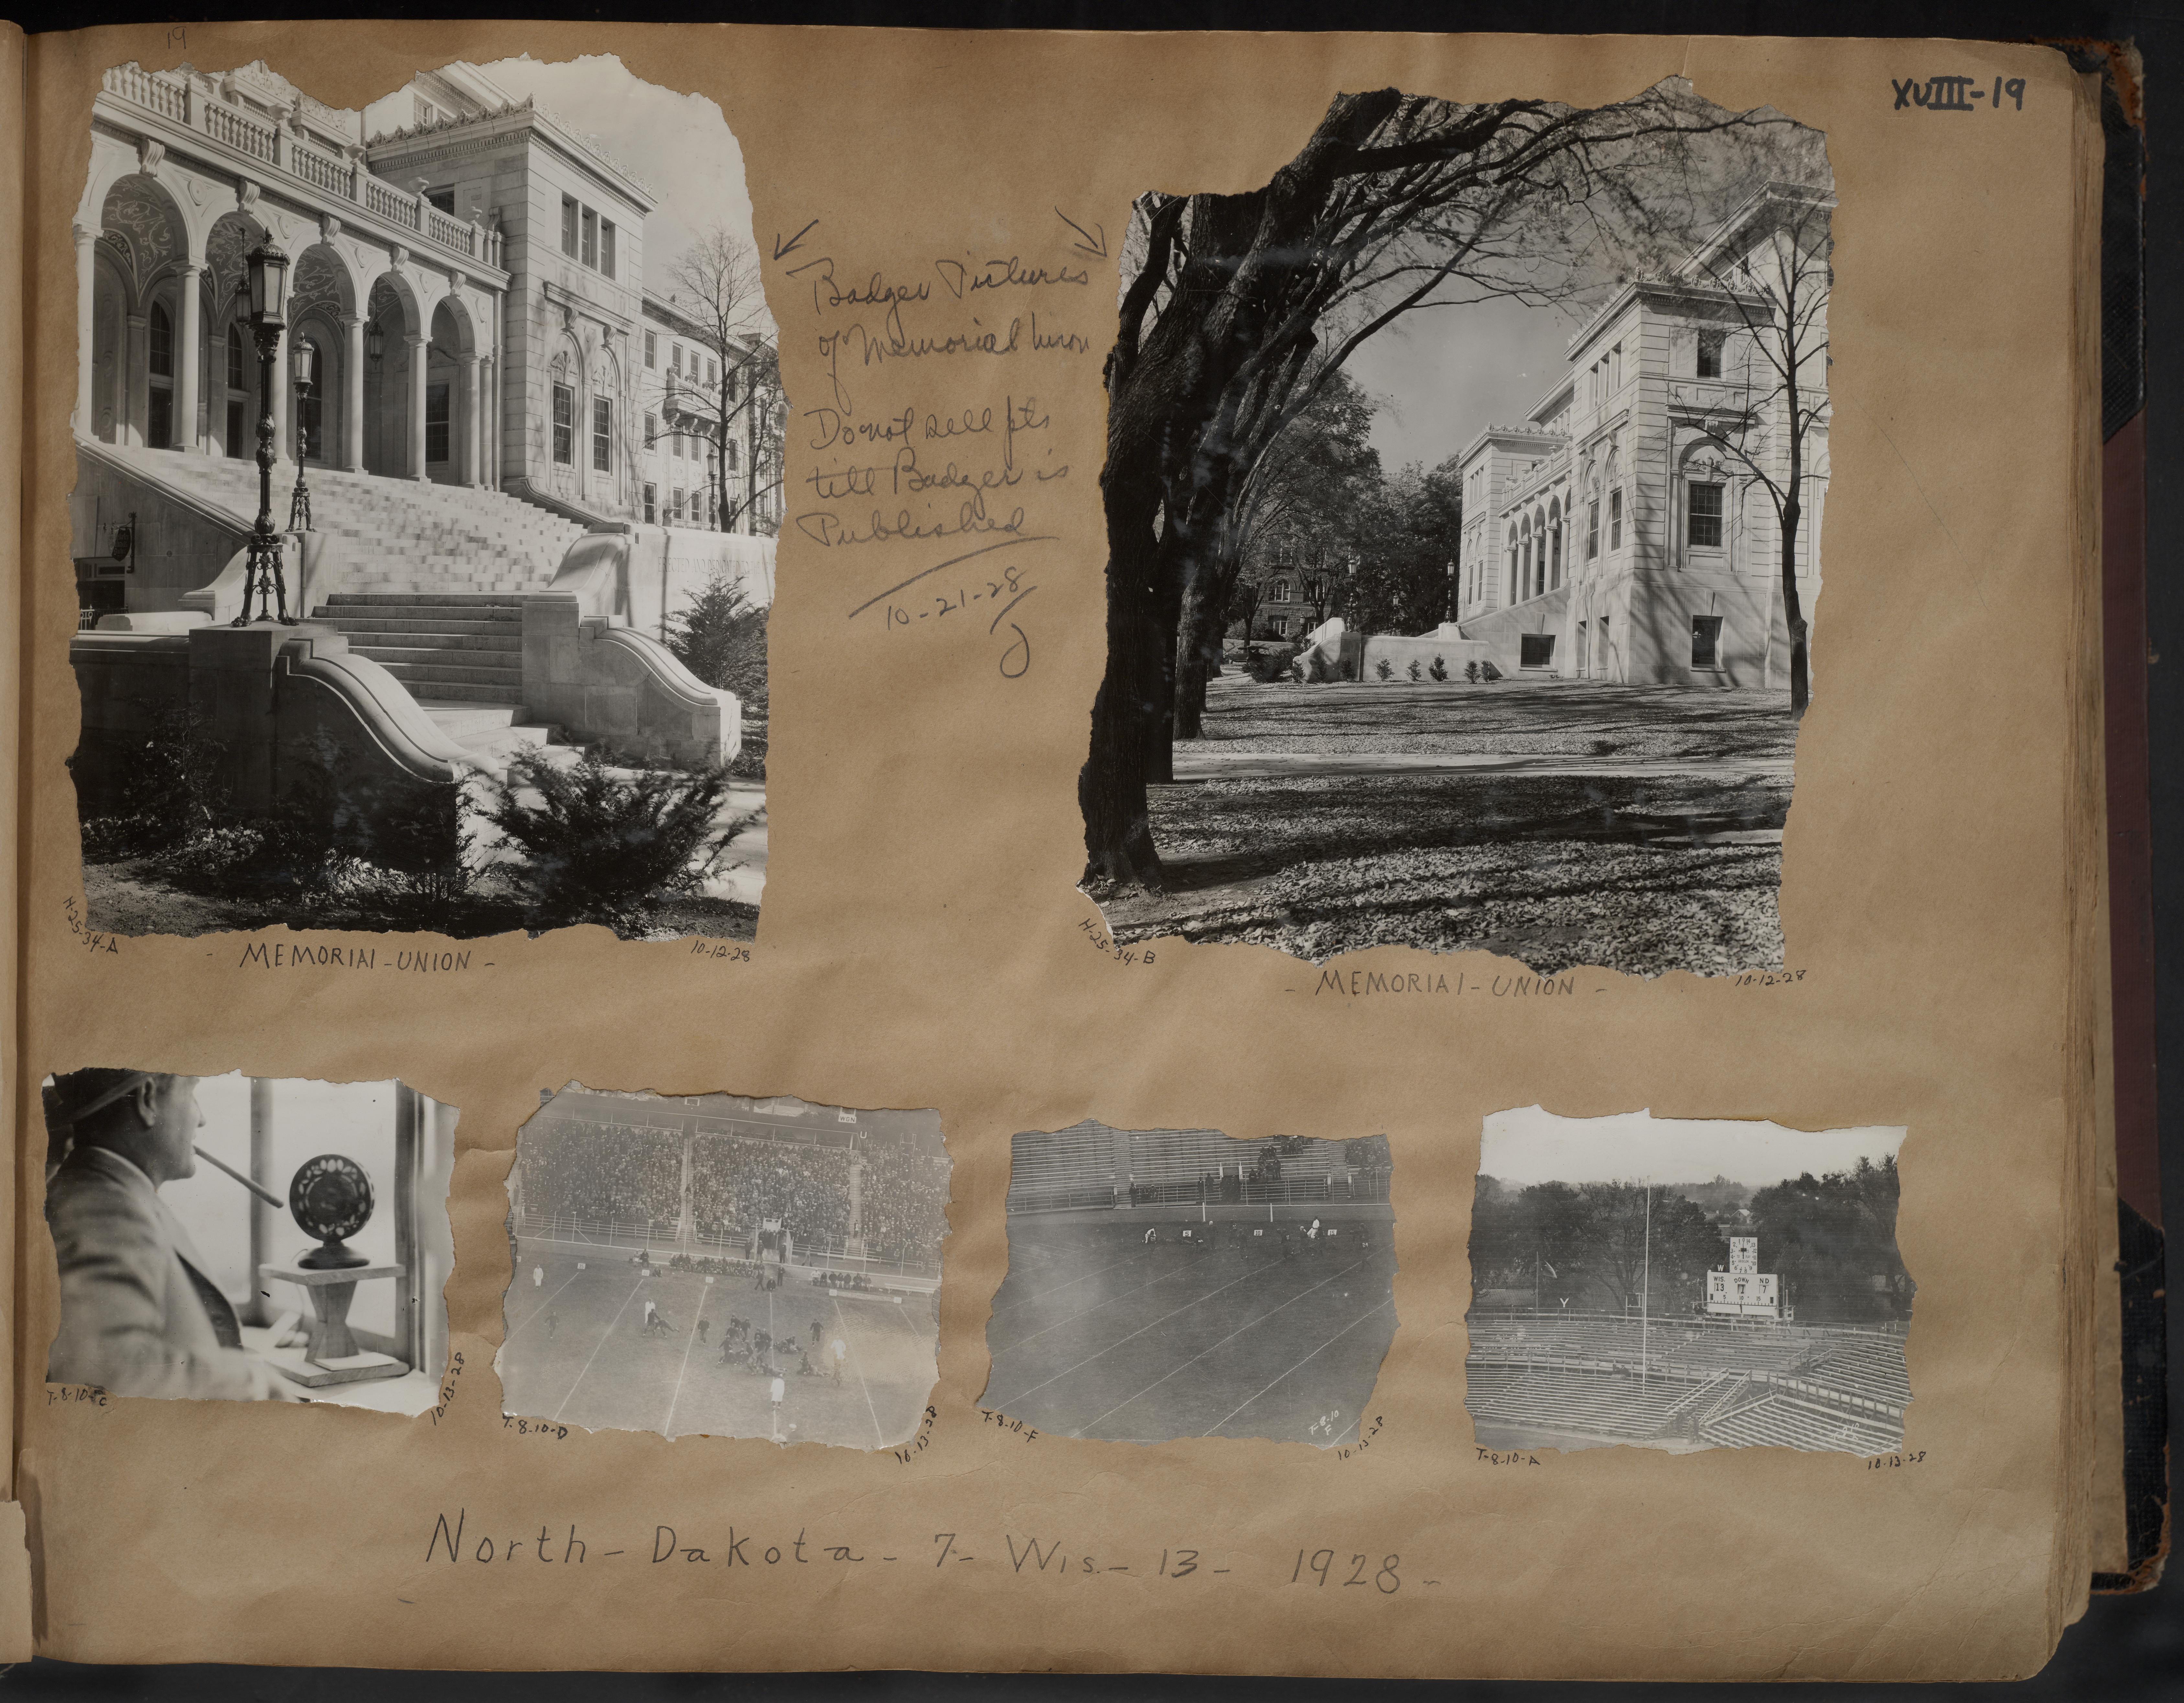 19
XVIII-19
Badger Pictures
of Memorial Union
Do not sell pts
till Badger is
Published
10-21-28
J
H-25-34-A
- MEMORIAL-UNION -
10-12-28
H-25-34-B
- MEMORIAL-UNION -
10-12-28
WGN
U
Y
W
WIS. DOWN ND
13 1 7
T-8-10-C
10-13-28
T-8-10-D
10-13-28
T-8-10-F
T-8-10
F
10-13-28
T-8-10-A
10-13-28
North-Dakota-7-Wis.-13- 1928-